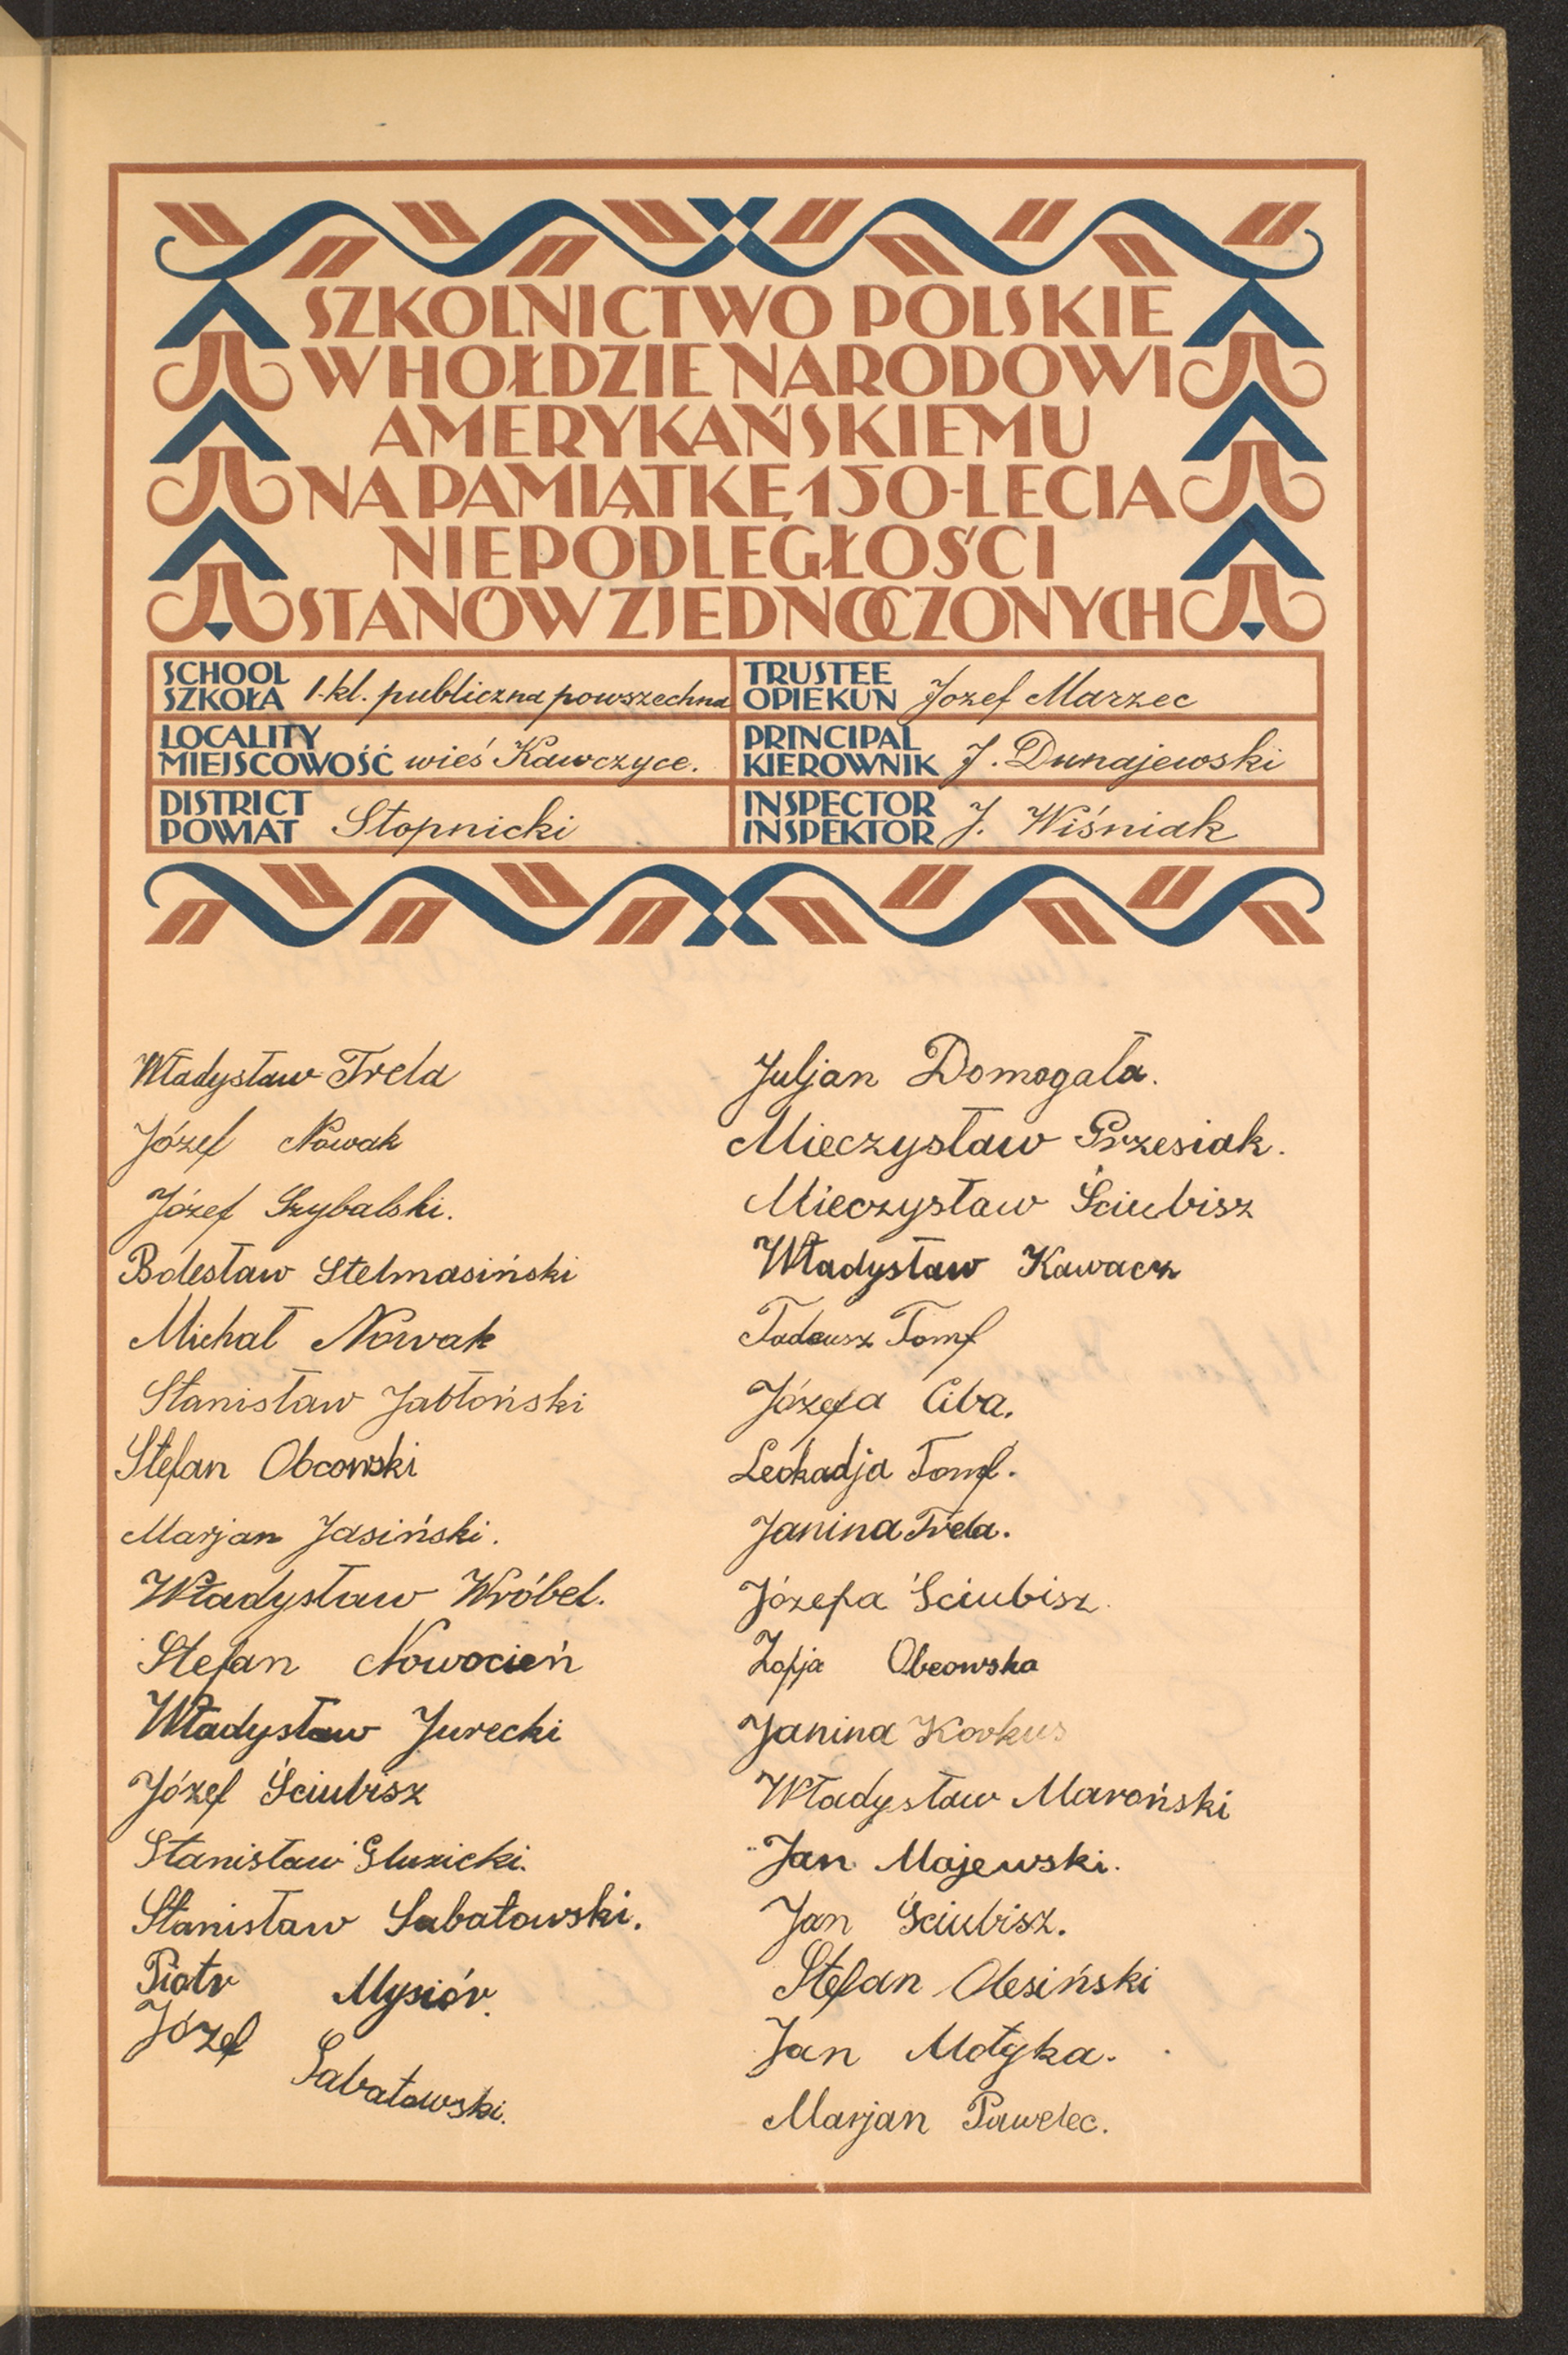 SZKOLNICTWO POLSKIE
W HOŁDZIE NARODOWI
AMERYKAŃSKIEMU
NA PAMIĄTKĘ 150-LECIA
NIEPODLEGŁOŚCI
STANÓW ZJEDNOCZONYCH
SCHOOL
SZKOŁA 1-kl. publiczna powszechna
TRUSTEE
OPIEKUN Józef Marzec
LOCALITY
MIEJSCOWOŚĆ wieś Kawczyce.
PRINCIPAL
KIEROWNIK J. Dunajewski
DISTRICT
POWIAT Stopnicki
INSPECTOR
INSPEKTOR J. Wiśniak
Władysław Trela
Józef Nowak
Józef Szybalski.
Bolesław Stelmasiński
Michał Nowak
Stanisław Jabłoński
Stefan Obcowski
Marjan Jasiński.
Władysław Wróbel.
Stefan Nowocień
Władysław Jurecki
Józef Ściubisz
Stanisław Gluzicki.
Stanisław Sabatowski.
Piotr Mysiór.
Józef Sabatowski.
Juljan Domogała.
Mieczysław Przesiak.
Mieczysław Ściubisz
Władysław Kawacz
Tadeusz Tomf
Józefa Ciba.
Leokadja Tomf.
Janina Trela.
Józefa Ściubisz
Zofja Obcowska
Janina Korkus
Władysław Maroński
Jan Majewski.
Jan Ściubisz.
Stefan Olesiński
Jan Motyka.
Marjan Pawelec.